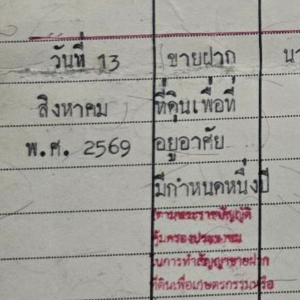 วันที่ 13
สิงหาคม
พ.ศ. 2569
ขายฝาก
ที่ดินเพื่อที่
อยู่อาศัย
มีกำหนดหนึ่งปี
(ตามพระราชบัญญัติ
คุ้มครองประชาชน
ในการทำสัญญาขายฝาก
ที่ดินเพื่อเกษตรกรรมหรือ